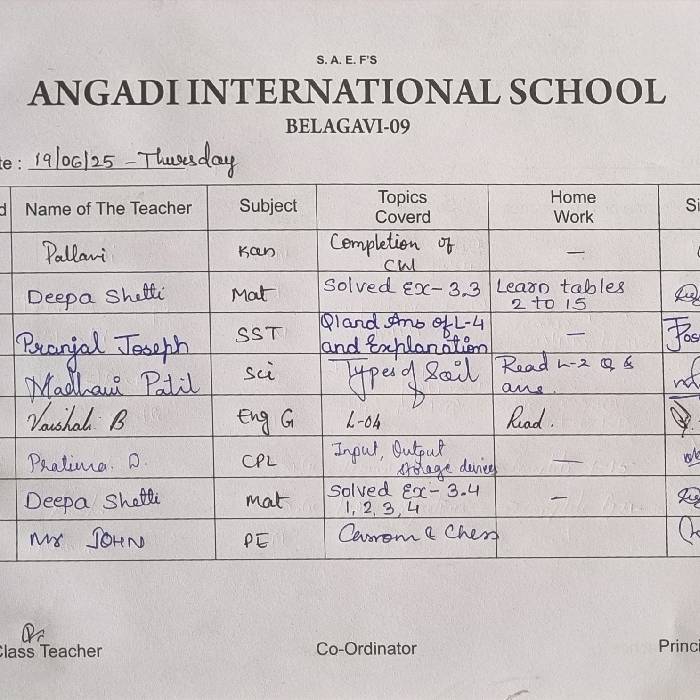 S. A. E. F'S
ANGADI INTERNATIONAL SCHOOL
BELAGAVI-09
te : 19/06/25 - Thursday
d Name of The Teacher Subject Topics Coverd Home Work Si
Pallavi Kan Completion of CW —
Deepa Shetti Mat Solved Ex- 3.3 Learn tables 2 to 15
Pranjal Joseph SST Q|and Ans of L-4 and Explanation —
Madhavi Patil Sci Types of Soil Read L-2 Q & ans.
Vaishali B Eng G L-04 Read.
Pratima. D. CPL Input, Output storage devices —
Deepa Shetti mat Solved Ex- 3.4 1, 2, 3, 4 —
Mr JOHN PE Carrom & Chess
Class Teacher Co-Ordinator Princi